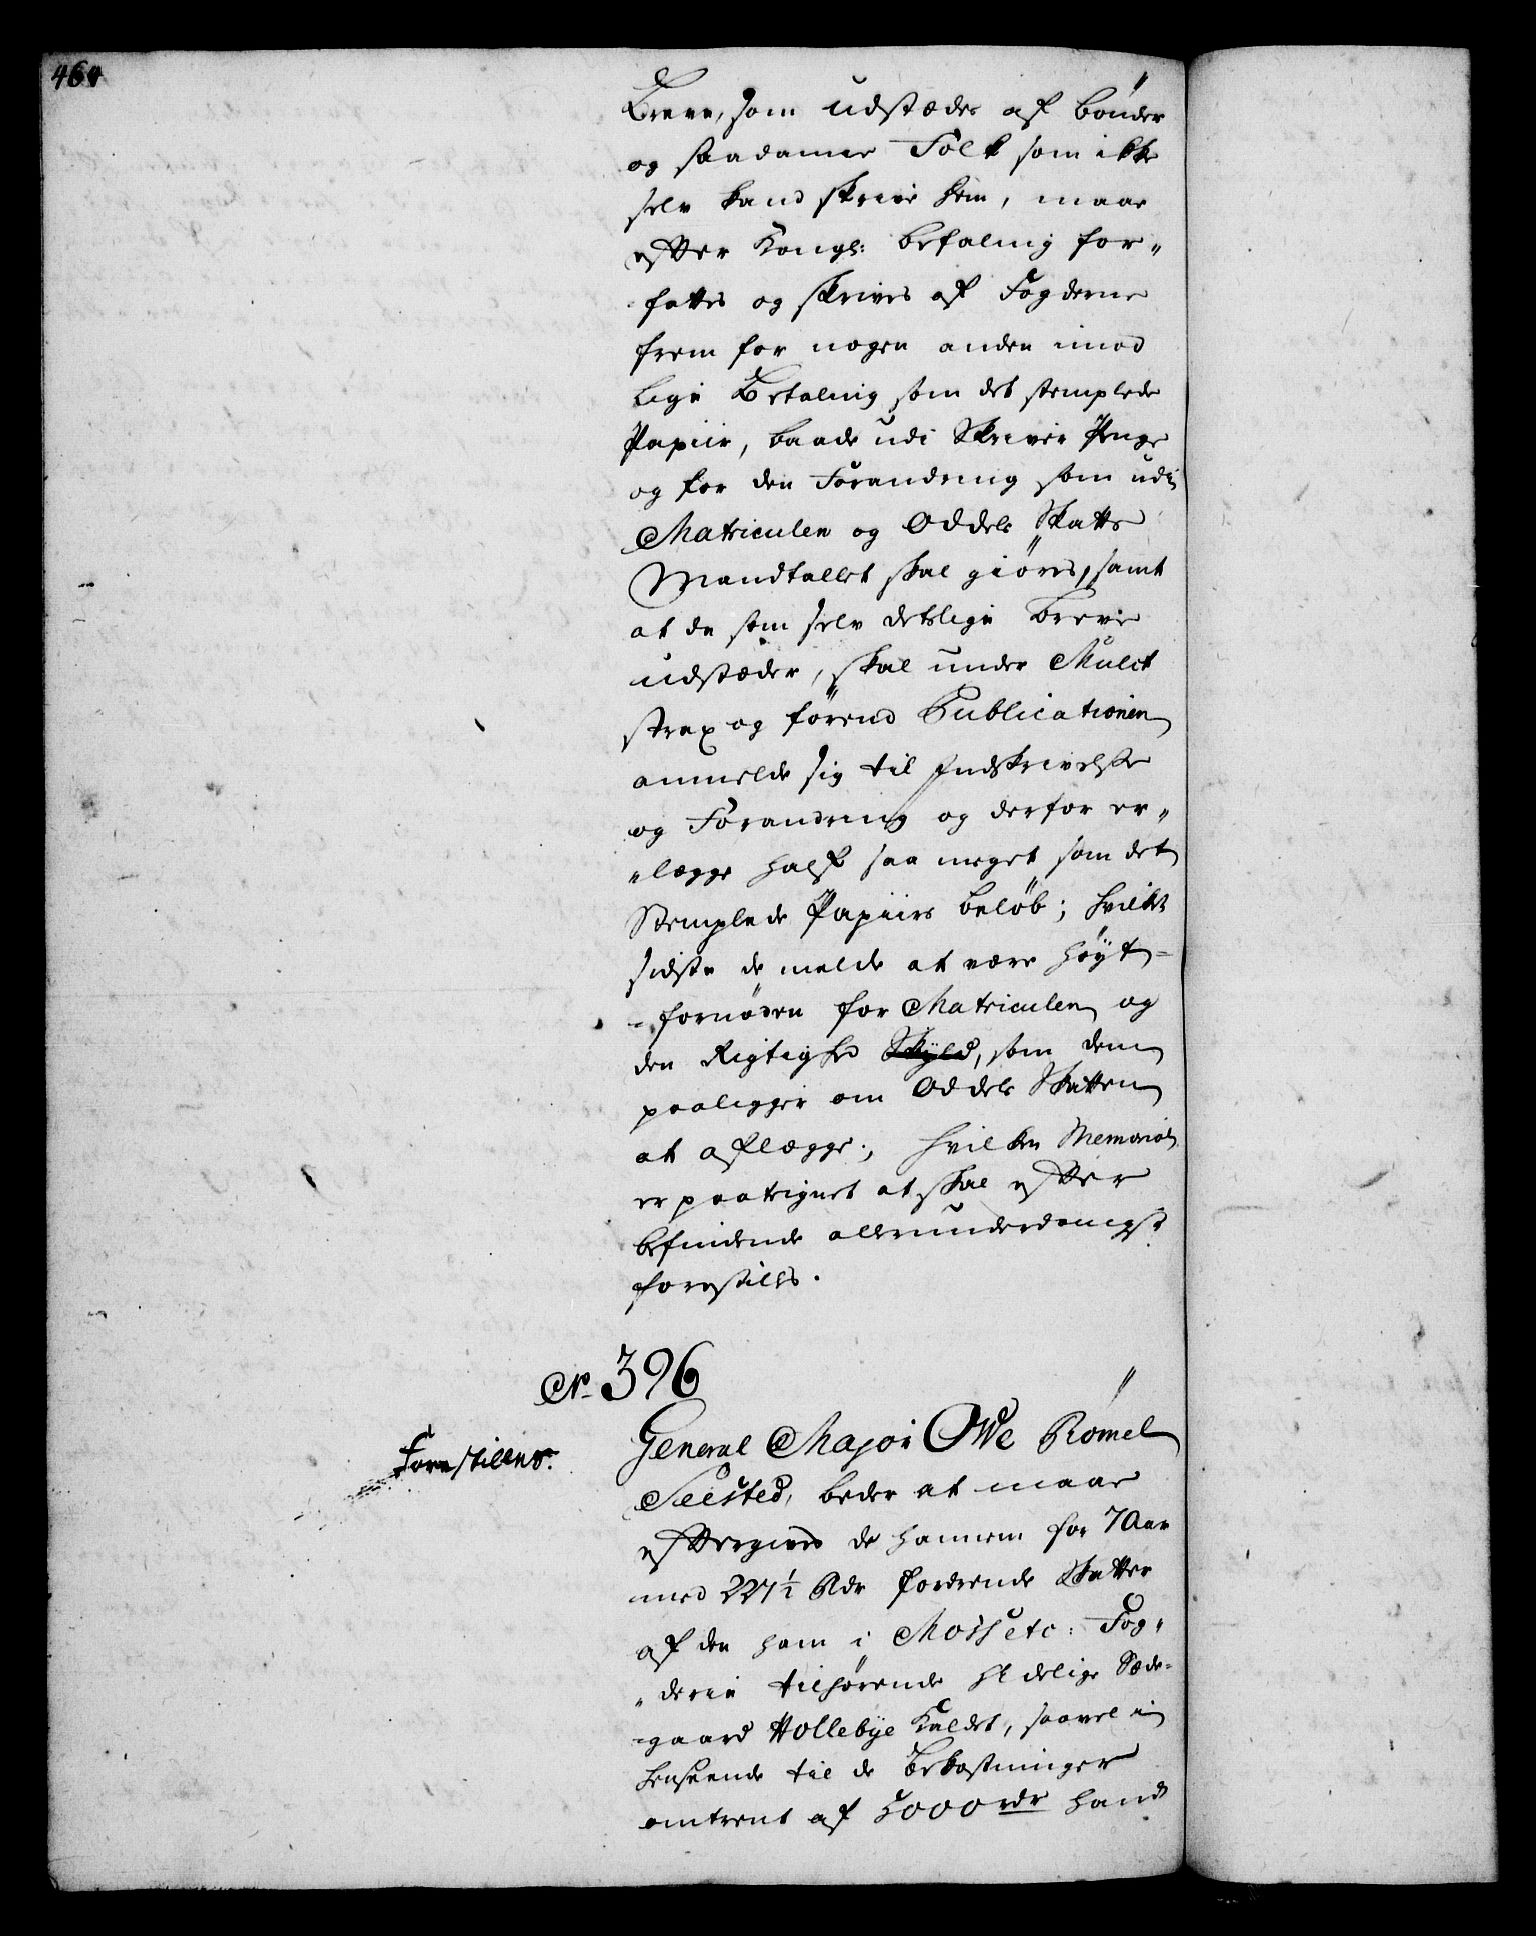 464
Breve, som udstædes af bønder
og saadanne Folk som ikke
selv kand skrive dem, maae
efter Kongl: befaling for„
fattes og skrives af Fogderne
frem for nogen anden imod
lige Betaling som det stemplede
Papiir, baade udi Skriver Penge
og for den Forandring som udi
Matriculen og Oddels Skatte
Mandtallet skal giøres, samt
at de som selv deslige breve
udstæder, skal under Mulct
strax og førend Publicationen
anmelde sig til Indskrivelse
og Forandring og derfor er„
„lægge half saa meget som det
Stemplede Papiirs beløb; hvilket
sidste de melde at være høyt=
fornøden for Matriculen og
den Rigtighed Skyld, som dem
paaligger om Oddels Skatten
at aflægge; hvilken Memorial
er paategnet at skal efter
befindende allerunderdanigst
forestilles.
No 396
Forestillet.
General Major Owe Rømel
Seested, beder at maae
eftergives de hannem for 7 Aar
med 227½ Rdr fordrende Skatter
af den ham i Moss etc: Fog„
„derie tilhørende Adelige Sæde=
gaard Hollebye kaldet, saavel i
henseende til de Bekostninger
omtrent af 5000 rdr hand